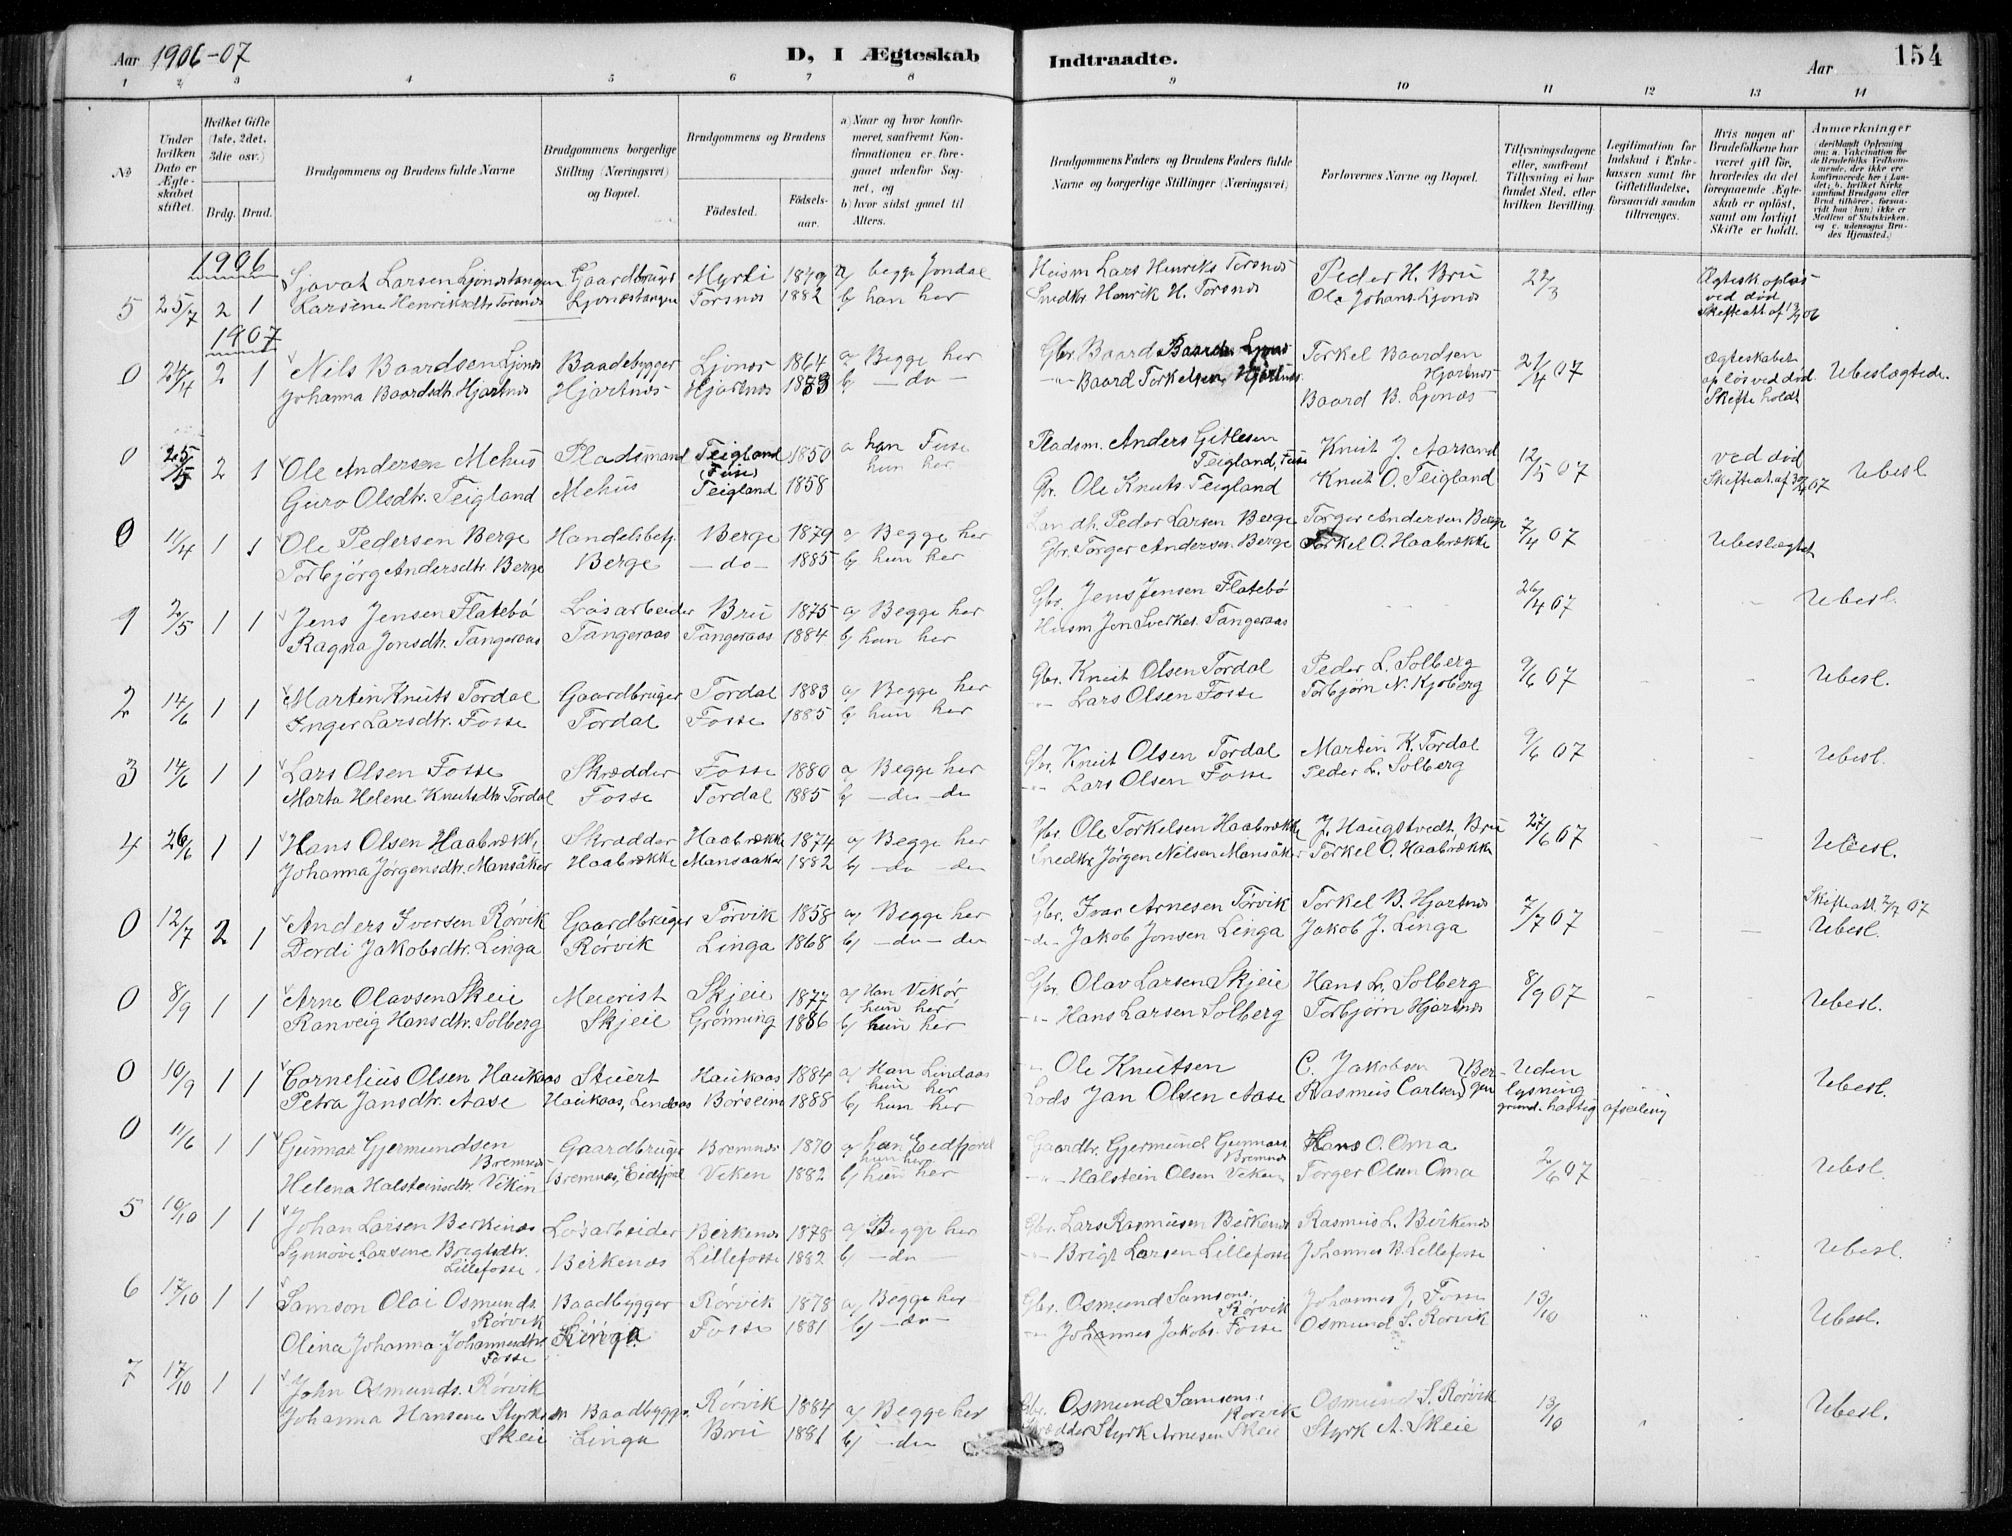 Aar 1906-07
D, I Ægteskab
Indtraadte.
Aar
154
1 2 3 4 5 6 7 8 9 10 11 12 13 14
No
Under hvilken Dato er Ægteskabet stiftet.
Hvilket Gifte (1ste, 2det, 3die osv.)
Brdg. Brud.
Brudgommens og Brudens fulde Navne
Brudgommens borgerlige Stilling (Næringsvei) og Bopæl.
Brudgommens og Brudens
Fødested. Fødselsaar.
a) Naar og hvor konfirmeret, saafremt Konfirmationen er foregaaet udenfor Sognet, og
b) hvor sidst gaaet til Alters.
Brudgommens Faders og Brudens Faders fulde Navne og borgerlige Stillinger (Næringsvei)
Forlovernes Navne og Bopæl.
Tillysningsdagene eller, saafremt Tillysning ei har fundet Sted, efter hvilken Bevilling.
Legitimation for Indskud i Enkekassen samt for Giftetilladelse, forsaavidt saadan tiltrænges.
Hvis nogen af Brudefolkene har været gift før, hvorledes da det foregaaende Ægteskab er opløst, samt om lovligt Skifte er holdt.
Anmærkninger (deriblandt Oplysning om: a. Vakcination for de Brudefolks Vedkommende, der ikke ere konfirmerede her i Landet; b. hvilket Kirkesamfund Brudgom eller Brud tilhører, forsaavidt han (hun) ikke er Medlem af Statskirken, og c. udensogns Brudes Hjemsted.)
1906
Sjovat Larsen Ljonestangen Gaardbruger Myrti 1849 a) begge Jondal Husm Lars Henriks Torsnes Peder H. Bru 22/3 Ægtesk opløs
5 25/7 2 1 Larsene Henriksdtr. Torsnes Ljonestangen Torsnes 1882 b) han her Snedkr Henrik H. Torsnes Ola Johans. Ljones ved død
Skifteatt af 13/7 06
1907
0 24/4 2 1 Nils Baardsen Ljones Baadebygger Ljones 1864 a) Begge her Gbr. Baard Baards. Ljones Torkel Baardsen Hjartnes 21/4 07 Ægteskabet Ubeslægtede.
Johanna Baardsdtr. Hjartnes Hjartnes Hjartnes 1873 b) - do - -"- Baard Torkelsen Hjartnes. Baard B. Ljones opløs ved død. Skifte holdt
0 25/5 2 1 Ole Andersen Mehus Pladsmand Teigland (Fuse) 1850 a han Fuse hun her Pladsm. Anders Gitlesen Teigland, Fuse Knut J. Aarsand 12/5 07 ved død Ubesl
Guro Olsdtr. Teigland Mehus Teigland 1858 Gbr. Ole Knuts. Teigland Knut O. Teigland Skifteat af 30/4 07
0 11/4 1 1 Ole Pedersen Berge Handelsbetj. Berge 1879 a) Begge her Landh. Peder Larsen Berge Torger Andersen Berge 7/4 07 Ubeslægtet
Torbjörg Andersdtr. Berge Berge - do - 1885 b) hun her Gbr. Torger Andersen Berge Torkel O. Haabrække
1 2/5 1 1 Jens Jensen Flatebö Lösarbeider Bru 1875 a) Begge her Gbr. Jens Jensen Flatebö 26/4 07 Ubesl.
Ragna Jonsdtr. Tangeraas Tangeraas Tangeraas 1884 b) hun her Husm Jon Sverkes. Tangeraas
2 14/6 1 1 Martin Knuts Tordal Gaardbruger Tordal 1883 a) Begge her Gbr. Knut Olsen Tordal Peder L. Solberg 9/6 07 Ubesl.
Inger Larsdtr. Fosse Tordal Fosse 1885 b) hun her -"- Lars Olsen Fosse Torbjørn N. Kjøberg
3 14/6 1 1 Lars Olsen Fosse Skrædder Fosse 1880 a) Begge her Gbr. Knut Olsen Tordal Martin K. Tordal 9/6 07 Ubesl.
Marta Helene Knutsdtr. Tordal Fosse Tordal 1885 b) - do - do -"- Lars Olsen Fosse Peder L. Solberg
4 26/6 1 1 Hans Olsen Haabrække Skrædder Haabrække 1874 a) Begge her Gbr. Ole Torkelsen Haabrække J. Haugstvedt, Bru 27/6 07 Ubesl.
Johanna Jørgensdtr. Mansåker Haabrække Mansaaker 1882 b) - do - do Snedkr Jørgen Nilsen Mansåker Torkel O. Haabrække
0 12/7 2 1 Anders Iversen Rørvik Gaardbruger Tørvik 1858 a) Begge her Gbr. Ivar Arnesen Tørvik Torkel B. Hjartnes 7/7 07 Skifteatt. 2/7 07
Dordi Jakobsdtr. Linga Rørvik Linga 1868 b) - do - do -do- Jakob Jonsen Linga Jakob J. Linga Ubesl.
0 8/9 1 1 Arne Olavsen Skeie Meierist Skjeie 1877 a) Han Vikør hun her Gbr. Olav Larsen Skjeie Hans L. Solberg 8/9 07 Ubesl.
Ranveig Hansdtr. Solberg Skjeie Grønning 1886 b) hun her -"- Hans Larsen Solberg Torbjørn Hjartnes
0 10/9 1 1 Cornelius Olsen Haukaas Stuert Haukaas 1884 a) Han Lindaas hun her " Ole Knutsen C. Jakobsen Bergen Uden Ubesl.
Petra Jansdtr. Aase Haukaas, Lindaas Borsheim 1888 b) hun her Lods Jan Olsen Aase Rasmus Carlsen lysning grund. hastig afseiling
0 11/6 1 1 Gunnar Gjermundsen Bremnes Gaardbruger Bremnes 1870 a) han Eidfjord hun her Gaardbr. Gjermund Gunnars. Bremnes Hans O. Oma 2/6 07 Ubesl.
Helena Halsteinsdtr. Viken Bremnes, Eidfjord Viken 1882 b) hun her -"- Halstein Olsen Viken Torger Olsen Oma
5 10/10 1 1 Johan Larsen Berkenes Løsarbeider Berkenes 1878 a) Begge her Gbr. Lars Rasmusen Birkenes Rasmus L. Birkenes Ubesl.
Synnøve Larsene Brigtsdtr. Lillefosse Birkenæs Lillefosse 1882 b) - do -"- Brigt Larsen Lillefosse Johannes B. Lillefosse
6 17/10 1 1 Samson Olai Osmunds. Rørvik Baadbygger Rørvik 1878 a) Begge her Gbr. Osmund Samsons. Rørvik Johannes J. Fosse 13/10 Ubesl.
Olina Johanna Johannesdtr. Fosse Linga Fosse 1881 b) - do - -"- Johannes Jakobs. Fosse Osmund S. Rørvik
7 17/10 1 1 John Osmunds. Rørvik Baadbygger Rørvik 1884 a) Begge her Gbr. Osmund Samsons. Rørvik Osmund S. Rørvik 13/10 Ubesl.
Johanna Hansene Styrksdtr Skeie Linga Bru 1881 b) - do Skrædder Styrk Arnesen Skeie Styrk A. Skeie